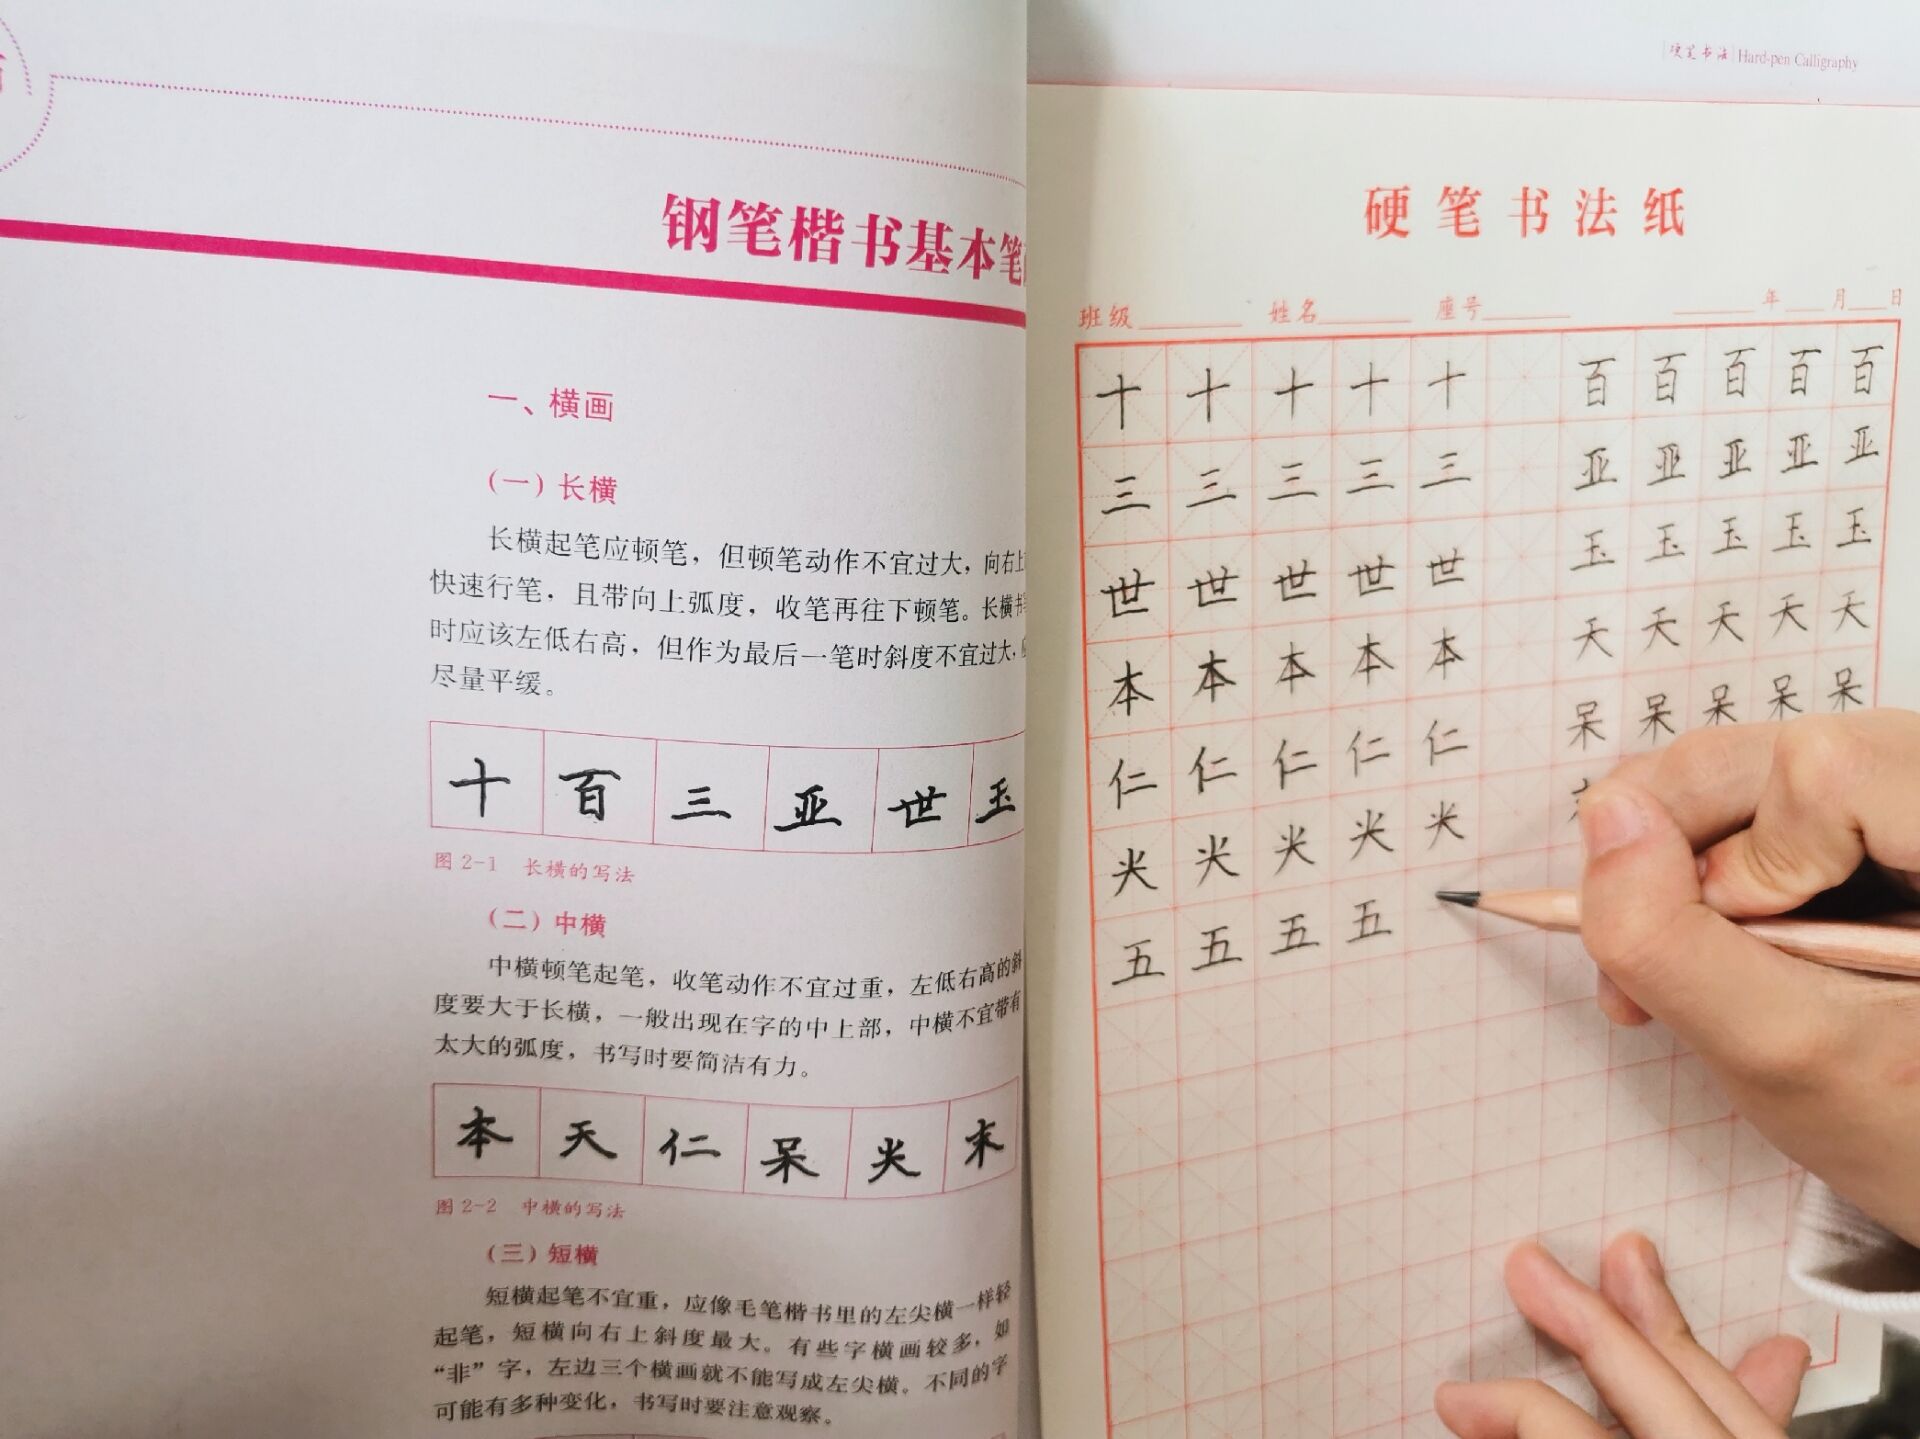 钢笔楷书基本笔
一、横画
（一）长横
长横起笔应顿笔，但顿笔动作不宜过大，向右上
快速行笔，且带向上弧度，收笔再往下顿笔。长横书
时应该左低右高，但作为最后一笔时斜度不宜过大，
尽量平缓。
十 百 三 亚 世 玉
图 2-1 长横的写法
（二）中横
中横顿笔起笔，收笔动作不宜过重，左低右高的斜
度要大于长横，一般出现在字的中上部，中横不宜带有
太大的弧度，书写时要简洁有力。
本 天 仁 呆 𡗗 末
图 2-2 中横的写法
（三）短横
短横起笔不宜重，应像毛笔楷书里的左尖横一样轻
起笔，短横向右上斜度最大。有些字横画较多，如
“非”字，左边三个横画就不能写成左尖横。不同的字
可能有多种变化，书写时要注意观察。
硬笔书法 Hard-pen Calligraphy
硬笔书法纸
班级 姓名 座号 年 月 日
十 十 十 十 十 百 百 百 百 百
三 三 三 三 三 亚 亚 亚 亚 亚
世 世 世 世 世 玉 玉 玉 玉 玉
本 本 本 本 本 天 天 天 天 天
仁 仁 仁 仁 仁 呆 呆 呆 呆 呆
五 五 五 五